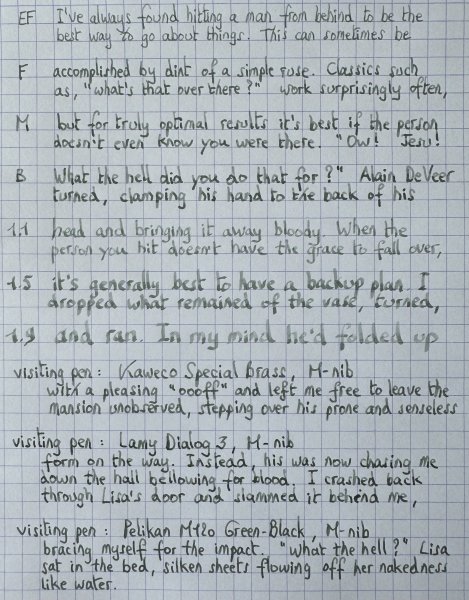 EF I've always found hitting a man from behind to be the
best way to go about things. This can sometimes be
F accomplished by dint of a simple ruse. Classics such
as, "what's that over there?" work surprisingly often,
M but for truly optimal results it's best if the person
doesn't even know you were there. "Ow! Jesu!
B What the hell did you do that for?" Alain DeVeer
turned, clamping his hand to the back of his
1.1 head and bringing it away bloody. When the
person you hit doesn't have the grace to fall over,
1.5 it's generally best to have a backup plan. I
dropped what remained of the vase, turned,
1.9 and ran. In my mind he'd folded up
visiting pen: Kaweco Special Brass, M-nib
with a pleasing "ooofff" and left me free to leave the
mansion unobserved, stepping over his prone and senseless
visiting pen: Lamy Dialog 3, M-nib
form on the way. Instead, his was now chasing me
down the hall bellowing for blood. I crashed back
through Lisa's door and slammed it behind me,
visiting pen: Pelikan M120 Green-Black, M-nib
bracing myself for the impact. "What the hell?" Lisa
sat in the bed, silken sheets flowing off her nakedness
like water.